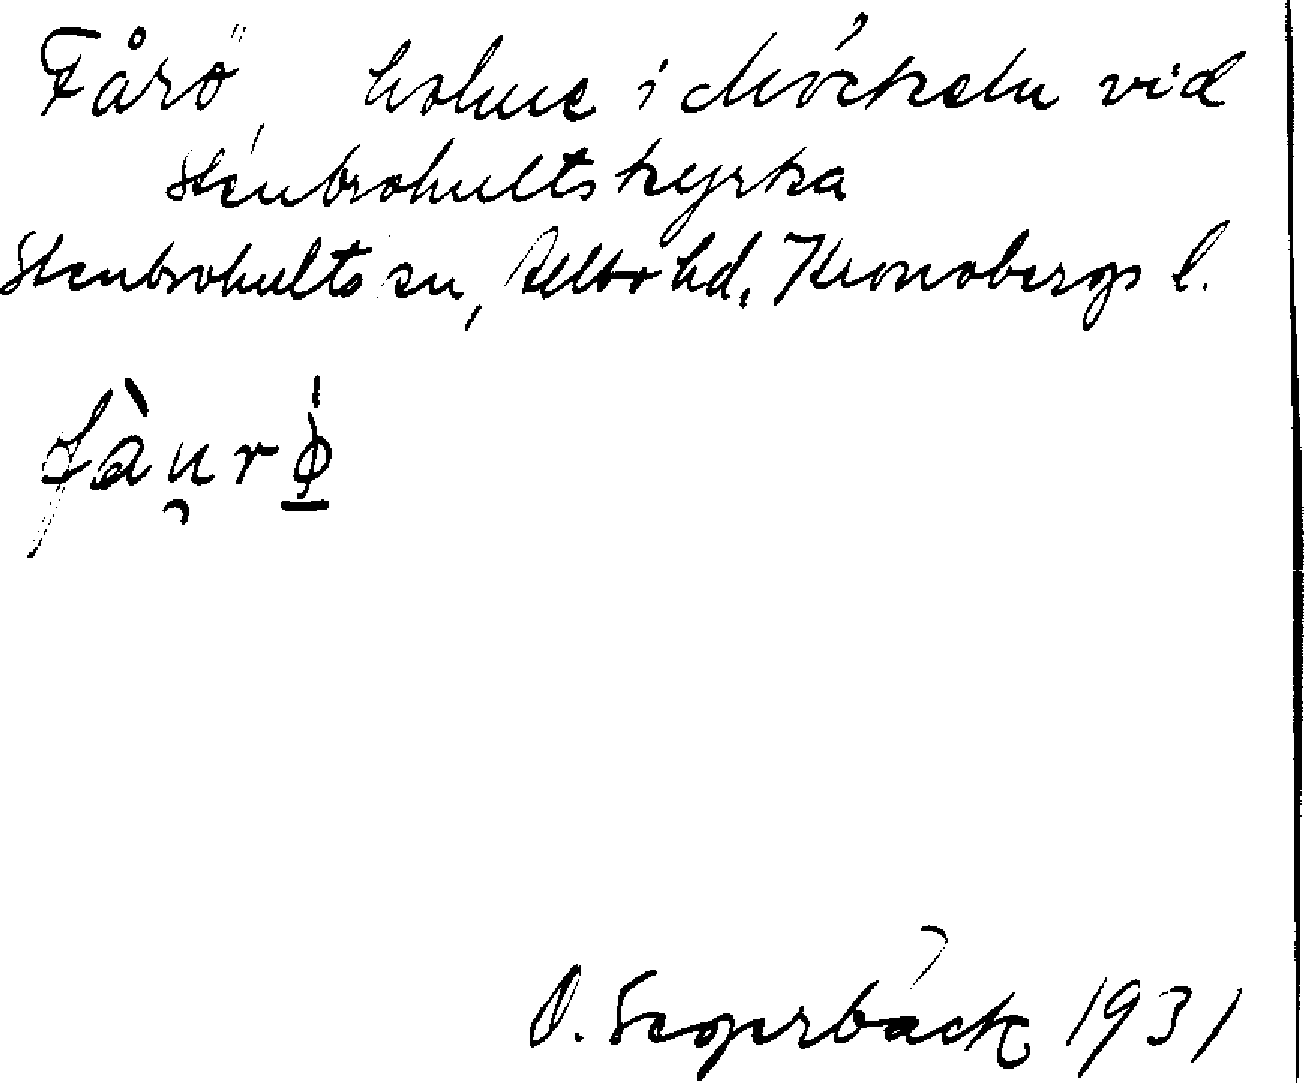 Fårö, holme i Möckeln vid
Stenbrohults kyrka
Stenbrohults sn, Allbo hd, Kronobergs l.
fàu̯rø̲̍
O. Segerbäck 1931